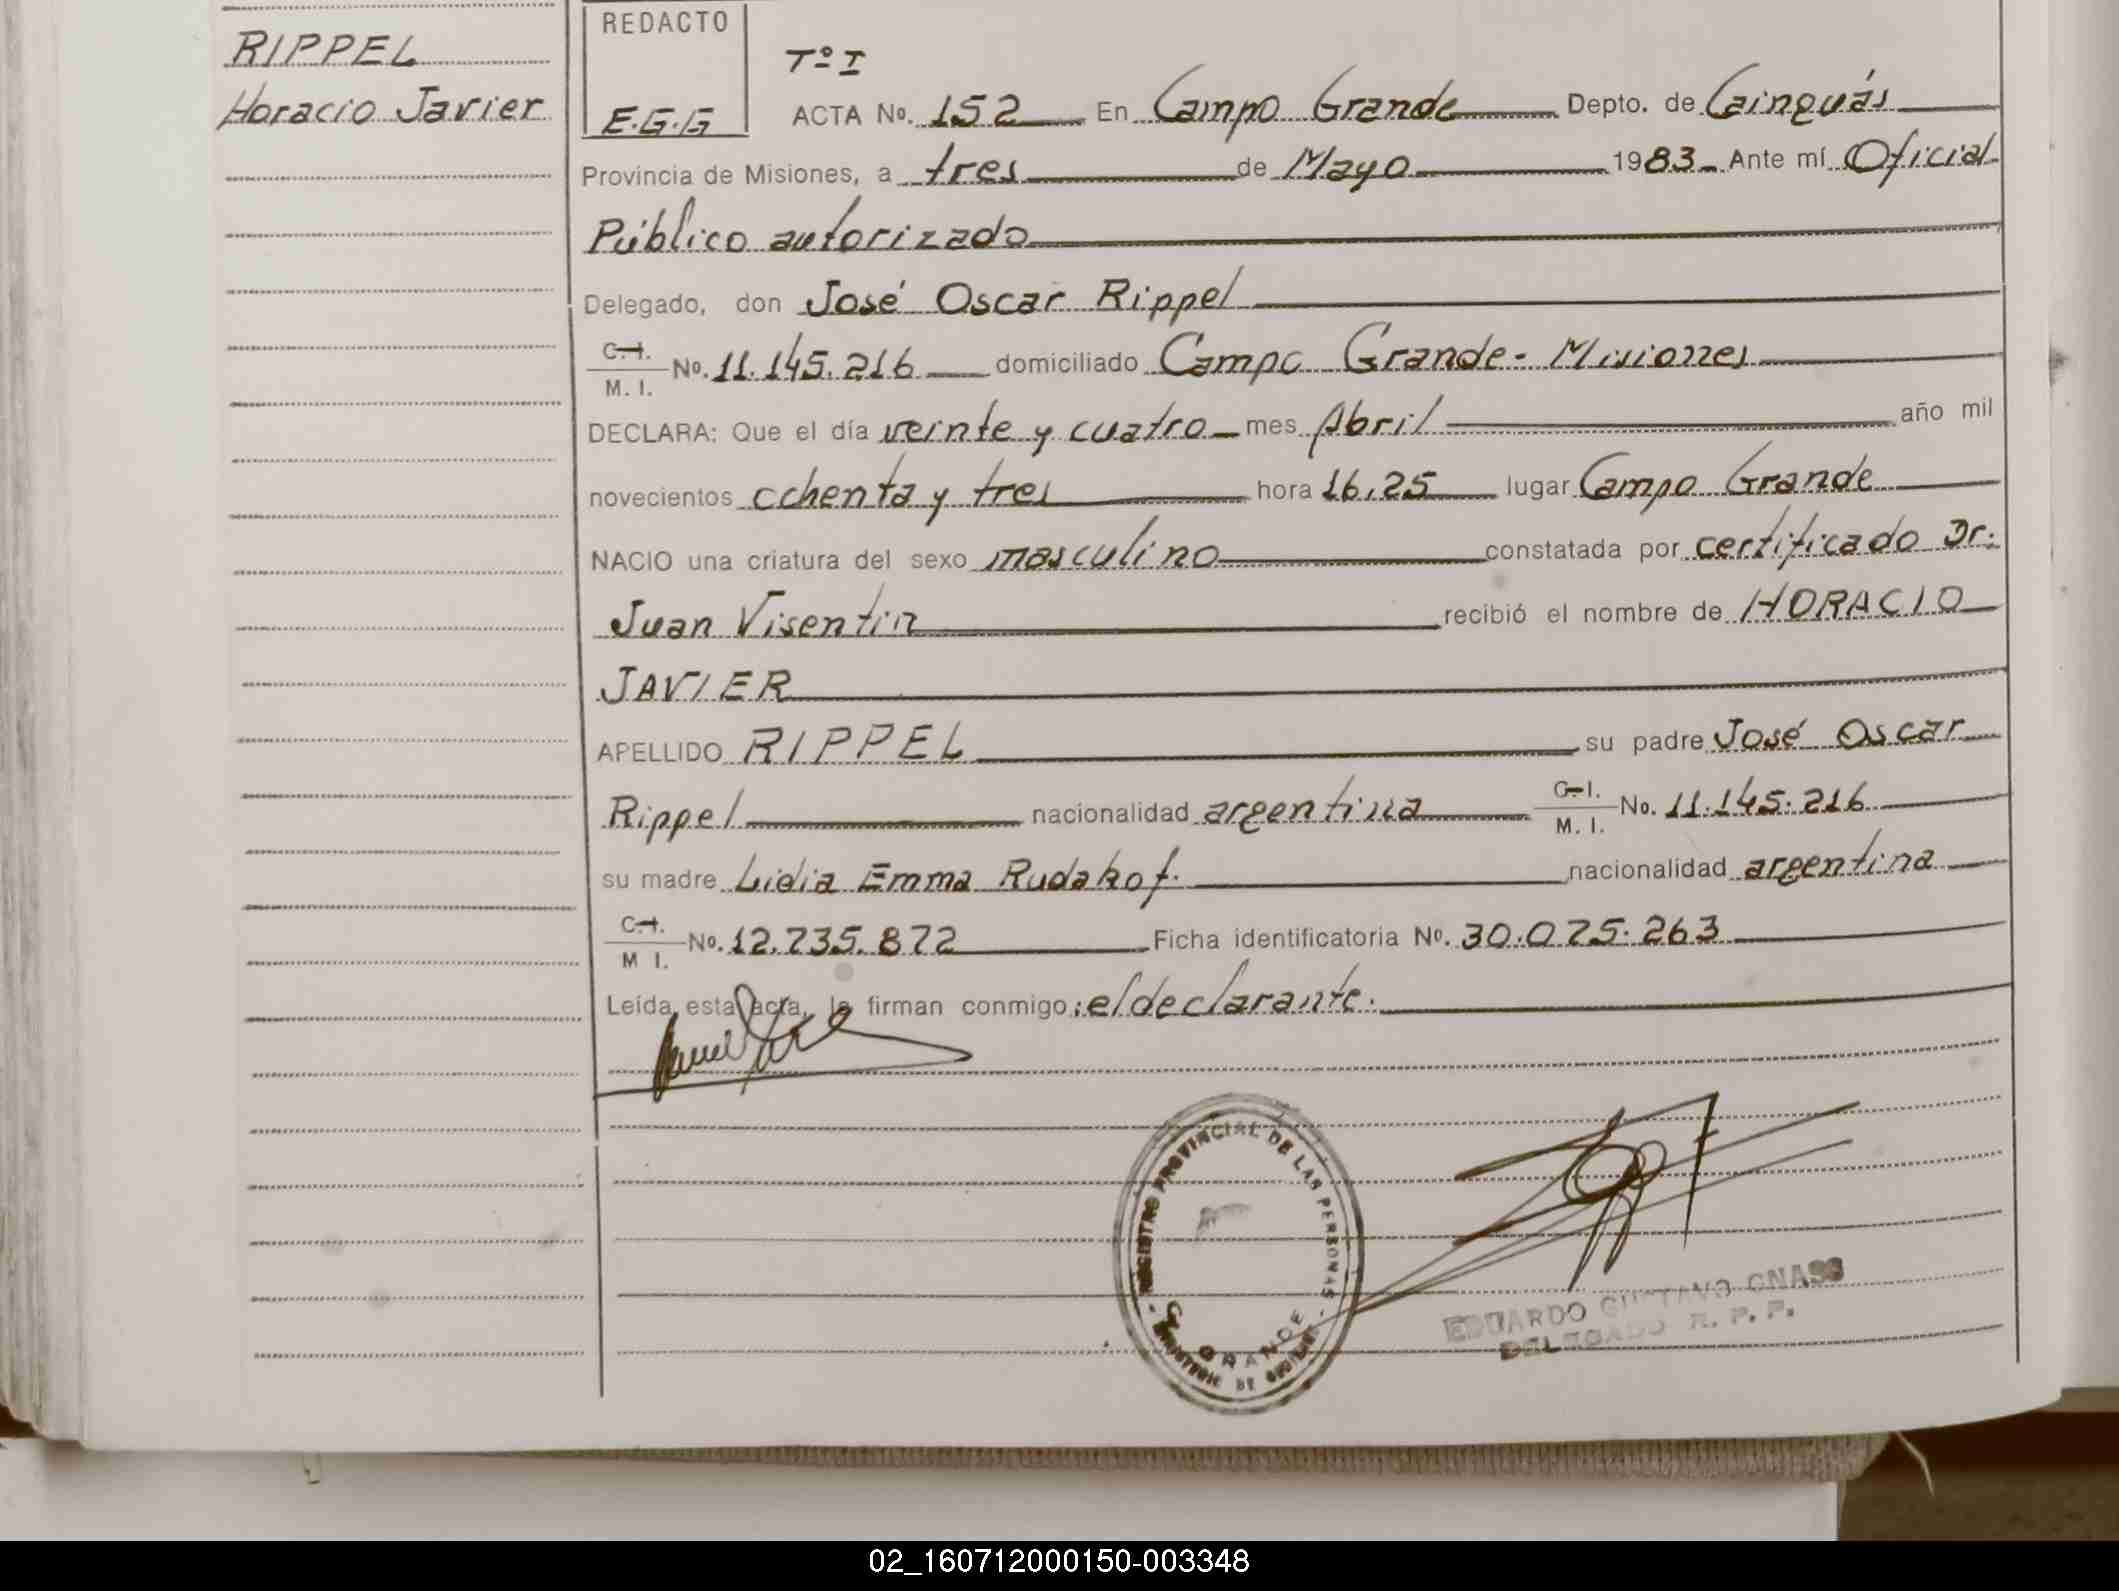 RIPPEL
Horacio Javier
REDACTO
E.G.G
Tº I
ACTA No. 152 En Campo Grande Depto. de Cainguás
Provincia de Misiones, a tres de Mayo 1983 Ante mí Oficial
Público autorizado
Delegado, don José Oscar Rippel
C.I. M.I. No. 11.145.216 domiciliado Campo Grande - Misiones
DECLARA: Que el día veinte y cuatro mes Abril año mil
novecientos ochenta y tres hora 16,25 lugar Campo Grande
NACIO una criatura del sexo masculino constatada por certificado Dr.
Juan Visentin recibió el nombre de HORACIO
JAVIER
APELLIDO RIPPEL su padre José Oscar
Rippel nacionalidad argentina C.I. M.I. No. 11.145.216
su madre Lidia Emma Rudakof. nacionalidad argentina
C.I. M I. No. 12.735.872 Ficha identificatoria No. 30.075.263
Leída esta acta, la firman conmigo: el declarante.
REGISTRO PROVINCIAL DE LAS PERSONAS
GRANDE
EDUARDO GUSTAVO GNASS
DELEGADO R. P. P.
02_160712000150-003348